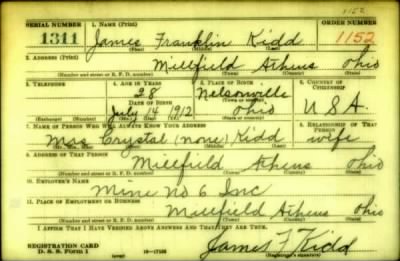 1152
SERIAL NUMBER 1. NAME (Print) ORDER NUMBER
1311 James Franklin Kidd 1152
(First) (Middle) (Last)
2. ADDRESS (Print)
Millfield Athens Ohio
(Number and street or R. F. D. number) (Town) (County) (State)
3. TELEPHONE 4. AGE IN YEARS 5. PLACE OF BIRTH 6. COUNTRY OF CITIZENSHIP
28 Nelsonville
DATE OF BIRTH (Town or county)
July 14 1912 Ohio U.S.A.
(Exchange) (Number) (Mo.) (Day) (Yr.) (State or country)
7. NAME OF PERSON WHO WILL ALWAYS KNOW YOUR ADDRESS 8. RELATIONSHIP OF THAT PERSON
Mrs Crystal (none) Kidd wife
(Mr., Mrs., Miss) (First) (Middle) (Last)
9. ADDRESS OF THAT PERSON
Millfield Athens Ohio
(Number and street or R. F. D. number) (Town) (County) (State)
10. EMPLOYER'S NAME
Mine No 6 Inc
11. PLACE OF EMPLOYMENT OR BUSINESS
Millfield Athens Ohio
(Number and street or R. F. D. number) (Town) (County) (State)
I AFFIRM THAT I HAVE VERIFIED ABOVE ANSWERS AND THAT THEY ARE TRUE.
REGISTRATION CARD
D. S. S. Form 1 16—17105 James F Kidd
(over) (Registrant's signature)